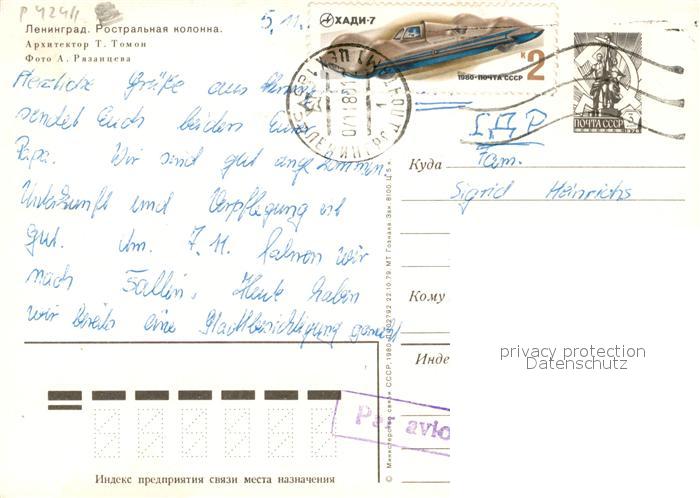 P 42411
Ленинград. Ростральная колонна.
Архитектор Т. Томон
Фото А. Рязанцева
5.11.
Herzliche Grüße aus
sendet Euch beiden Euer
Papa. Wir sind gut angekommen.
Unterkunft und Verpflegung ist
gut. Am 7.11. fahren wir
nach Tallin. Heute haben
wir bereits eine Stadtbesichtigung gemacht
ХАДИ-7
1980·ПОЧТА СССР
К 2
ПОЧТА СССР
3
ЛЕНИНГРАД
ПОЧТАМТ
ГДР
Куда
Fam.
Sigrid Heinrichs
Кому
Инде
privacy protection
Datenschutz
Par avio
© Министерство связи СССР, 1980 22.10.79. МТ Гознака Зак. 8100. Ц 5 к.
Индекс предприятия связи места назначения